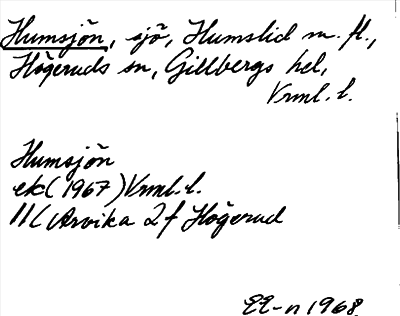 Humsjön, sjö, Humslid m. fl.,
Högeruds sn, Gillbergs hd,
Vrml. l.
Humsjön
ek (1967) Vrml. l.
11 ( Arvika 2f Högerud
EE-n 1968.